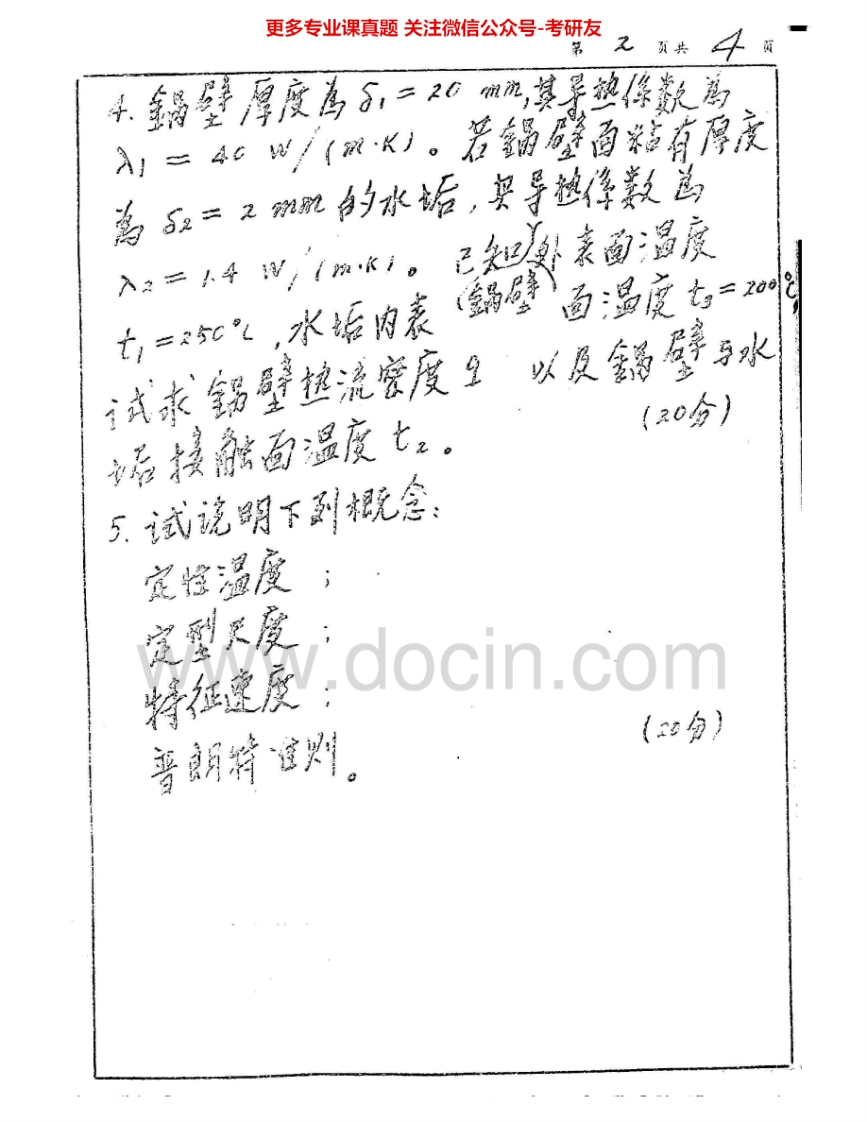 更多专业课真题 关注微信公众号-考研友
第 2 页共 4 页
4. 鍋壁厚度為 δ₁ = 20 mm,其导热係数為
λ₁ = 40 W/(m·K)。若鍋壁面粘有厚度
為 δ₂ = 2 mm 的水垢,其导热係数為
λ₂ = 1.4 W/(m·K)。已知(鍋壁)外表面温度
t₁ = 250℃,水垢内表面温度 t₃ = 200℃,
试求鍋壁热流密度 q 以及鍋壁与水
垢接触面温度 t₂。 (20分)
5. 试说明下列概念:
定性温度;
定型尺度;
特征速度;
普朗特准则。 (20分)
www.docin.com